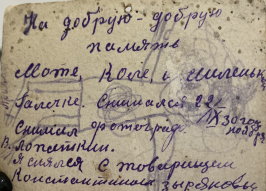 На добрую добрую
память
Моте, Коле, и миленьк
Галочке. Снимался 22/
IX
Снимал фотограф.
В. Лопаткин.
Я снялся с товарищем
Константином Зыряновы